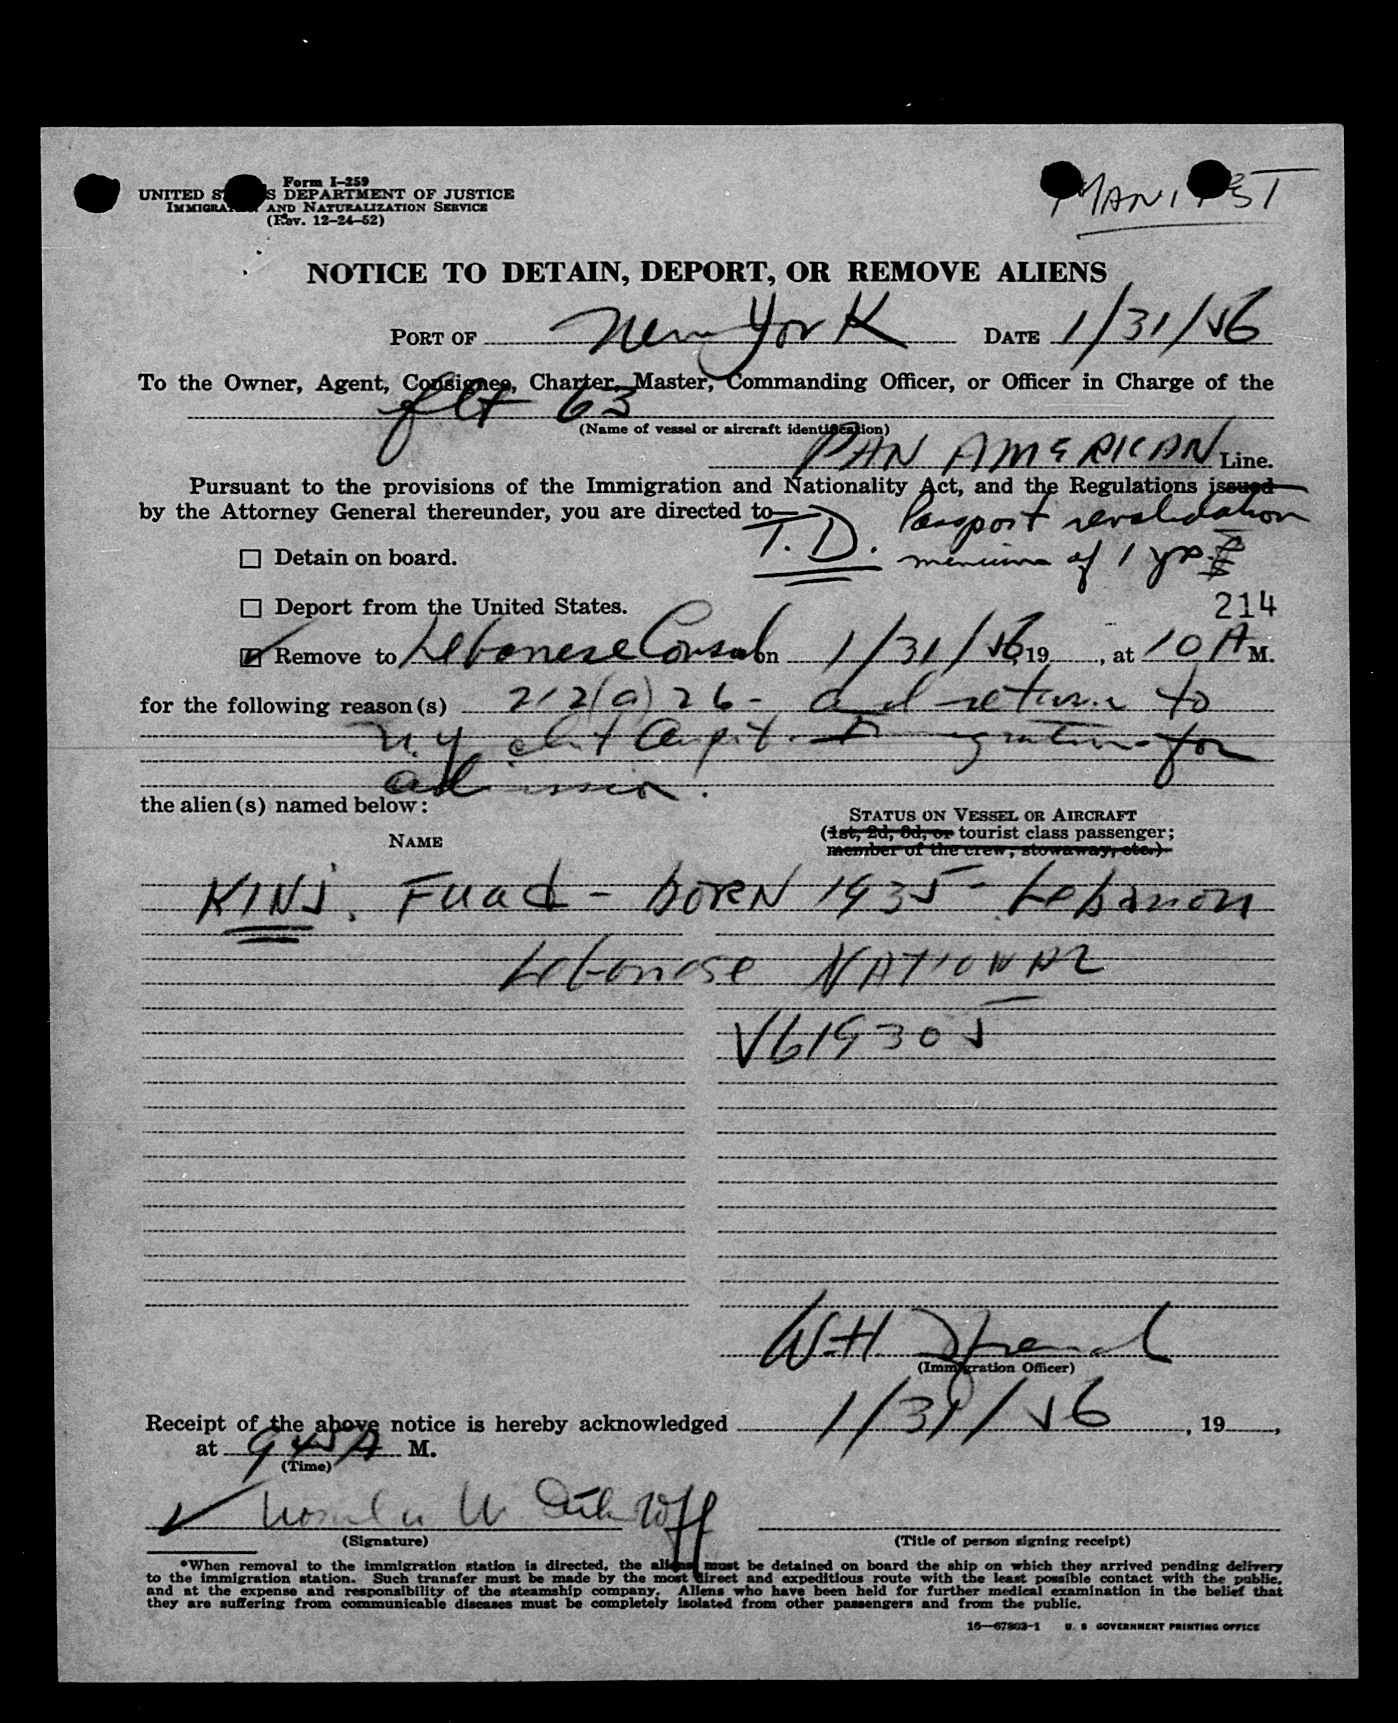 Form I-259
UNITED S S DEPARTMENT OF JUSTICE
IMMIGRA AND NATURALIZATION SERVICE
(Rev. 12-24-52)
MANI EST
NOTICE TO DETAIN, DEPORT, OR REMOVE ALIENS
PORT OF New York DATE 1/31/56
To the Owner, Agent, Consignee, Charter, Master, Commanding Officer, or Officer in Charge of the
flt 63
(Name of vessel or aircraft identification)
PAN AMERICAN Line.
Pursuant to the provisions of the Immigration and Nationality Act, and the Regulations issued
by the Attorney General thereunder, you are directed to—
T.D. Passport revalidation
of 1 yr
Detain on board.
Deport from the United States.
214
Remove to Lebanese Consul on 1/31/56, 19, at 10 A M.
for the following reason(s) 212(a)26 - and return to
N.Y. Immigration for
admission.
the alien(s) named below:
STATUS ON VESSEL OR AIRCRAFT
NAME
(1st, 2d, 3d, or tourist class passenger;
member of the crew; stowaway, etc.)
KINJ. Fuad - BORN 1935 - Lebanon
Lebanese NATIONAL
V619305
W.H.
(Immigration Officer)
Receipt of the above notice is hereby acknowledged 1/31/56, 19,
at 945 A M.
(Time)
(Signature)
(Title of person signing receipt)
*When removal to the immigration station is directed, the aliens must be detained on board the ship on which they arrived pending delivery
to the immigration station. Such transfer must be made by the most direct and expeditious route with the least possible contact with the public,
and at the expense and responsibility of the steamship company. Aliens who have been held for further medical examination in the belief that
they are suffering from communicable diseases must be completely isolated from other passengers and from the public.
16—67803-1 U. S. GOVERNMENT PRINTING OFFICE